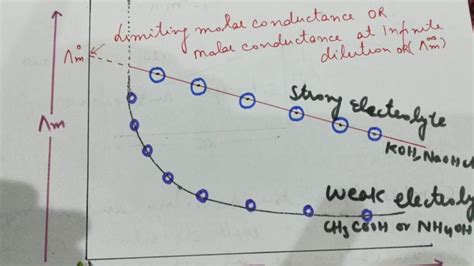 Limiting molar conductance OR
molar conductance at Infinite
dilution or (Λ∞m)
Λ°m
Λm
Strong electrolyte
KOH, NaOH
Weak electroly
CH3COOH or NH4OH